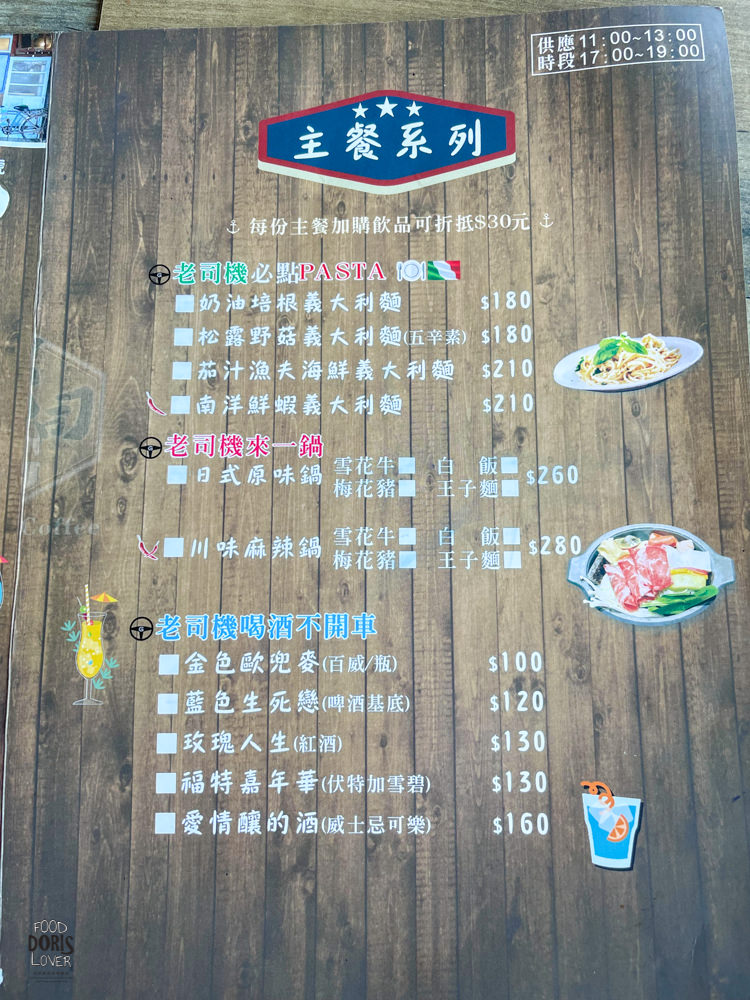 供應 11:00~13:00
時段 17:00~19:00
主餐系列
每份主餐加購飲品可折抵$30元
老司機必點PASTA
奶油培根義大利麵 $180
松露野菇義大利麵(五辛素) $180
茄汁漁夫海鮮義大利麵 $210
南洋鮮蝦義大利麵 $210
老司機來一鍋
日式原味鍋 雪花牛 白飯 $260
梅花豬 王子麵
川味麻辣鍋 雪花牛 白飯 $280
梅花豬 王子麵
老司機喝酒不開車
金色歐兜麥(百威/瓶) $100
藍色生死戀(啤酒基底) $120
玫瑰人生(紅酒) $130
福特嘉年華(伏特加雪碧) $130
愛情釀的酒(威士忌可樂) $160
Coffee
FOOD
DORIS
LOVER